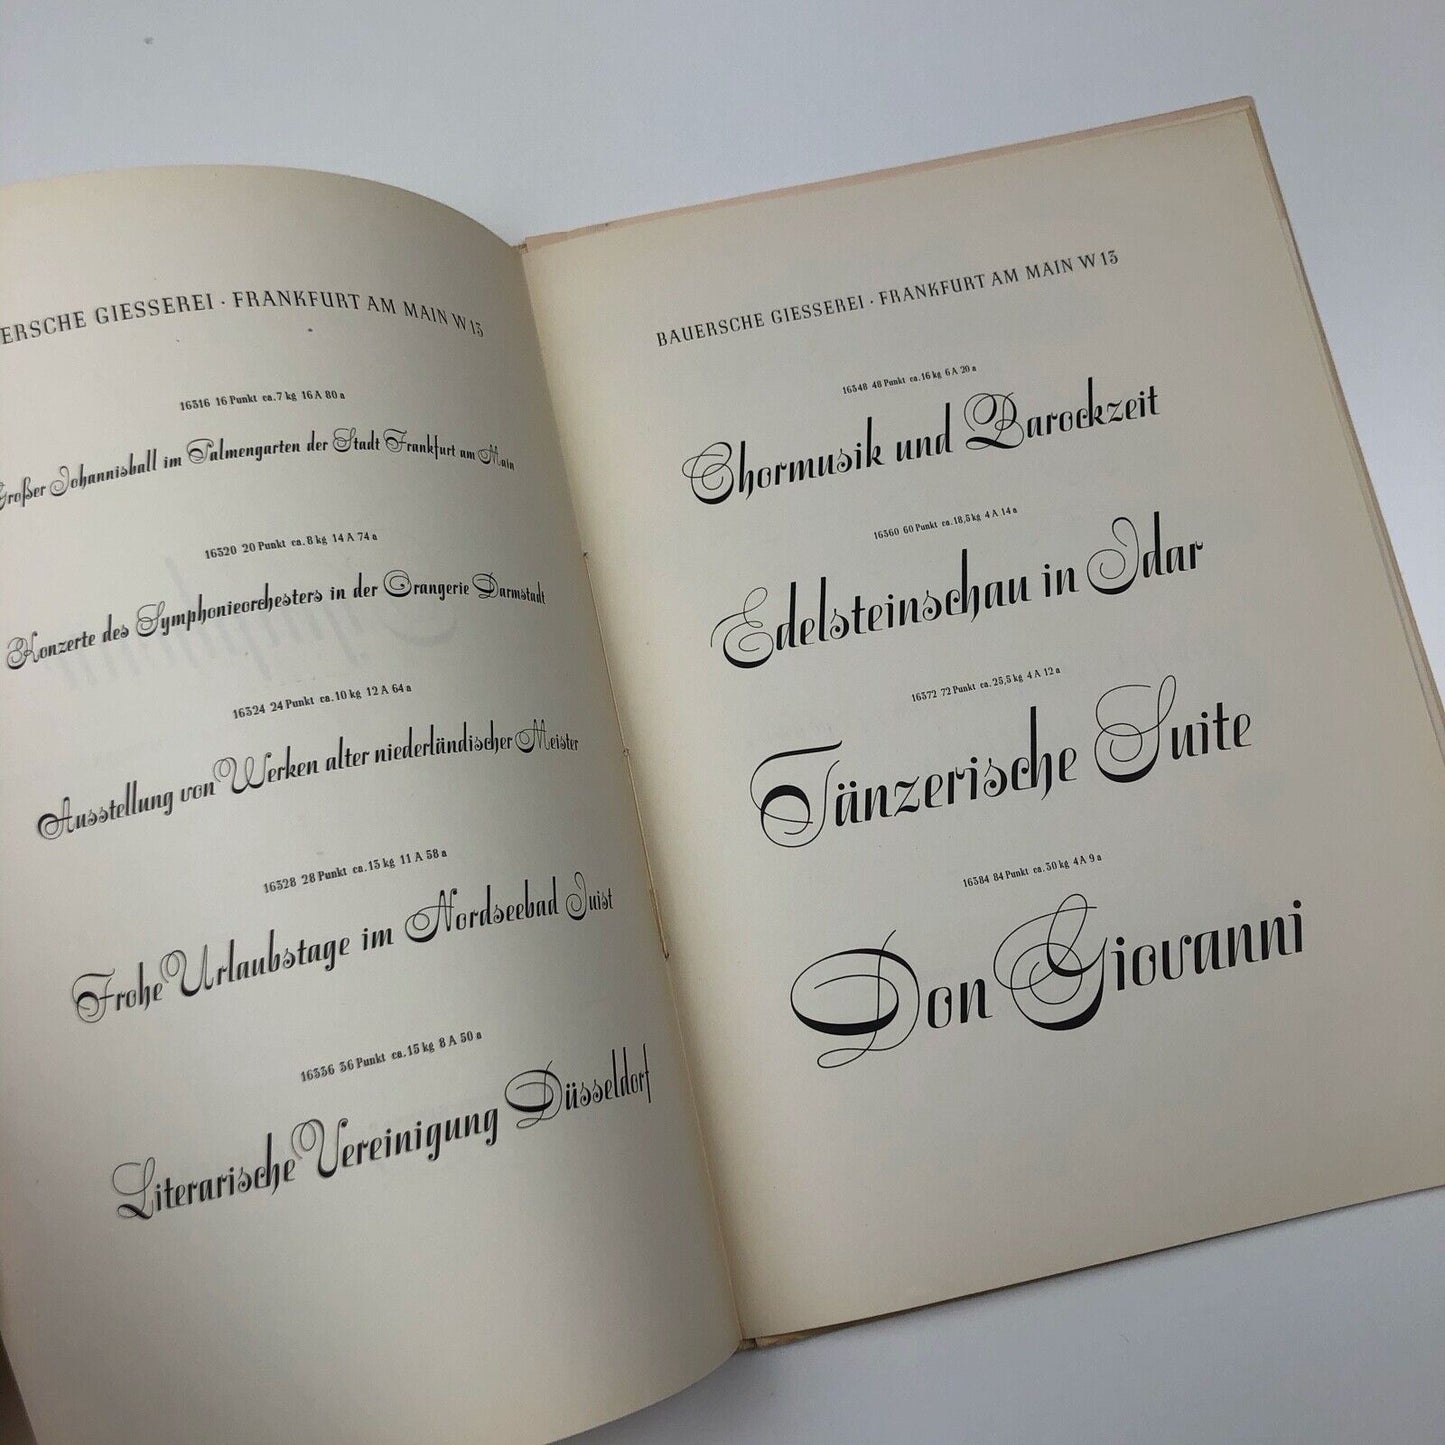 ERSCHE GIESSEREI · FRANKFURT AM MAIN W 13
16316 16 Punkt ca. 7 kg 16 A 80 a
Großer Johannisball im Palmengarten der Stadt Frankfurt am Main
16320 20 Punkt ca. 8 kg 14 A 74 a
Konzerte des Symphonieorchesters in der Orangerie Darmstadt
16324 24 Punkt ca. 10 kg 12 A 64 a
Ausstellung von Werken alter niederländischer Meister
16328 28 Punkt ca. 13 kg 11 A 58 a
Frohe Urlaubstage im Nordseebad Juist
16336 36 Punkt ca. 15 kg 8 A 30 a
Literarische Vereinigung Düsseldorf
BAUERSCHE GIESSEREI · FRANKFURT AM MAIN W 13
16348 48 Punkt ca. 16 kg 6 A 20 a
Chormusik und Barockzeit
16360 60 Punkt ca. 18,5 kg 4 A 14 a
Edelsteinschau in Idar
16372 72 Punkt ca. 25,5 kg 4 A 12 a
Tänzerische Suite
16384 84 Punkt ca. 30 kg 4 A 9 a
Don Giovanni